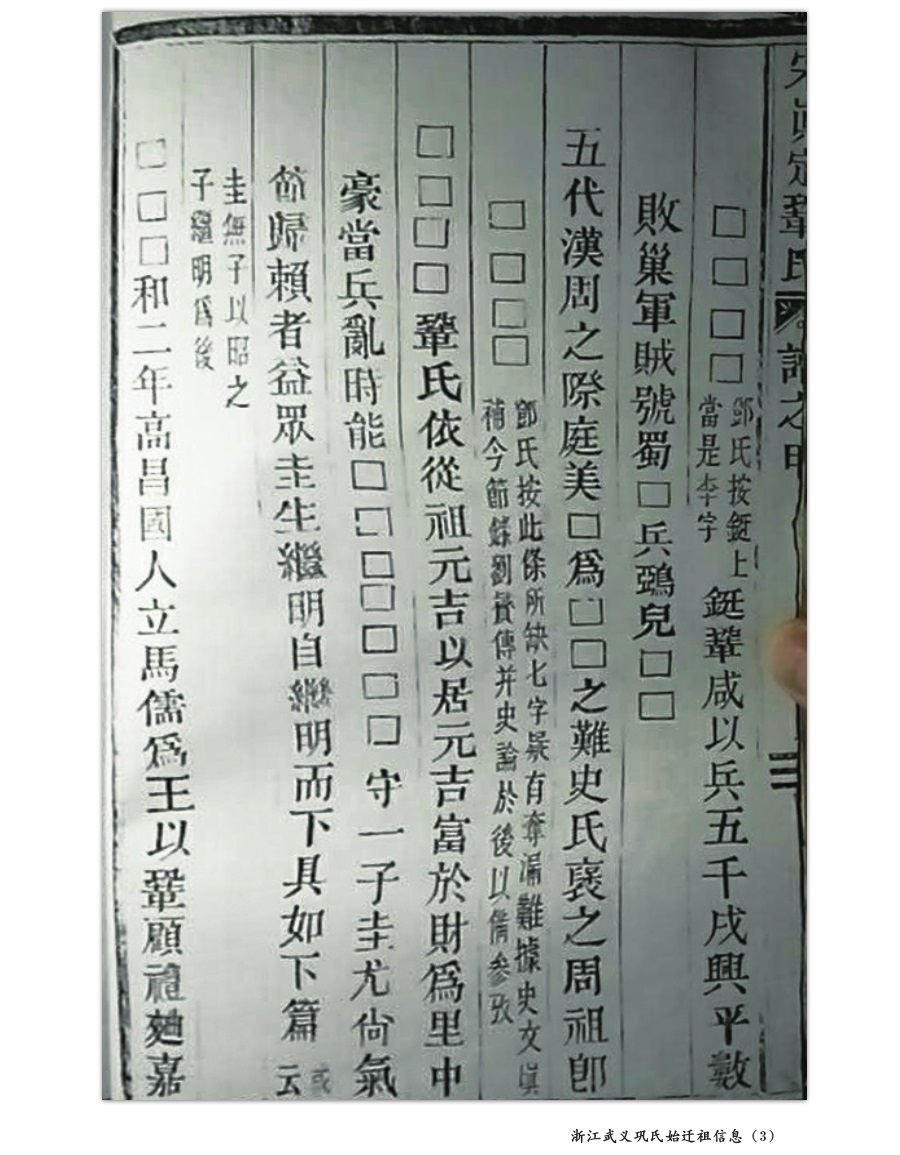 宋眞定鞏氏 譜之
□□□□鄧氏按鋋上當是李字鋋鞏咸以兵五千戍興平數
敗巢軍賊號蜀□兵鵶兒□□
五代漢周之際庭美□爲□□之難史氏裦之周祖卽
□□□□鄧氏按此條所缺七字疑有奪漏難據史文塡
補今節錄劉贇傳并史論於後以備參攷
□□□□鞏氏依從祖元吉以居元吉富於財爲里中
豪當兵亂時能□□□□□□□守一子圭尤尙氣
節歸賴者益眾圭生繼明自繼明而下具如下篇或云
圭無子以昭之
子繼明爲後
□□□和二年高昌國人立馬儒爲王以鞏顧禮麹嘉
浙江武义巩氏始迁祖信息（3）